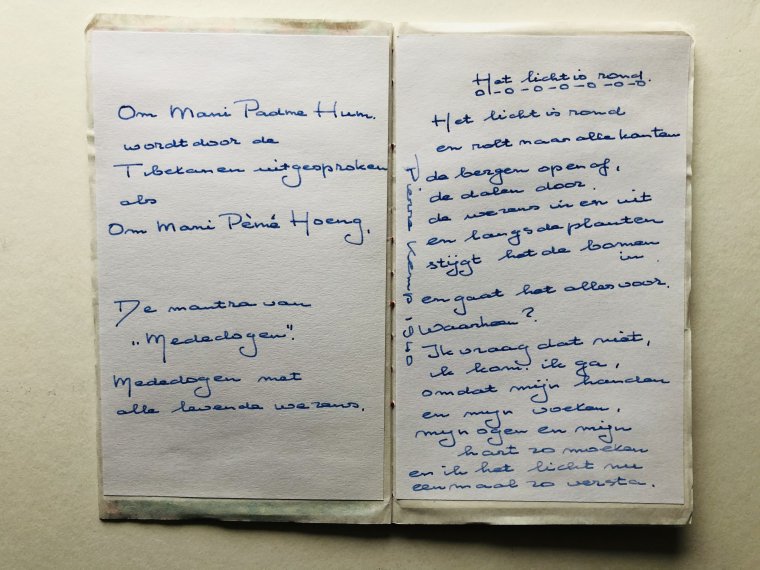 Om Mani Padme Hum.
wordt door de
Tibetanen uitgesproken
als
Om Mani Pèmé Hoeng.
De mantra van
"Mededogen".
Mededogen met
alle levende wezens.
Het licht is rond.
Het licht is rond
en rolt naar alle kanten
de bergen op en af,
de dalen door.
de wezens in en uit
en langs de planten
stijgt het de bomen
in
en gaat het alles voor.
Waarheen?
Ik vraag dat niet,
ik kom. ik ga,
omdat mijn handen
en mijn voeten,
mijn ogen en mijn
hart zo moeten
en ik het licht nu
eenmaal zo versta.
Pierre Kemp 1940